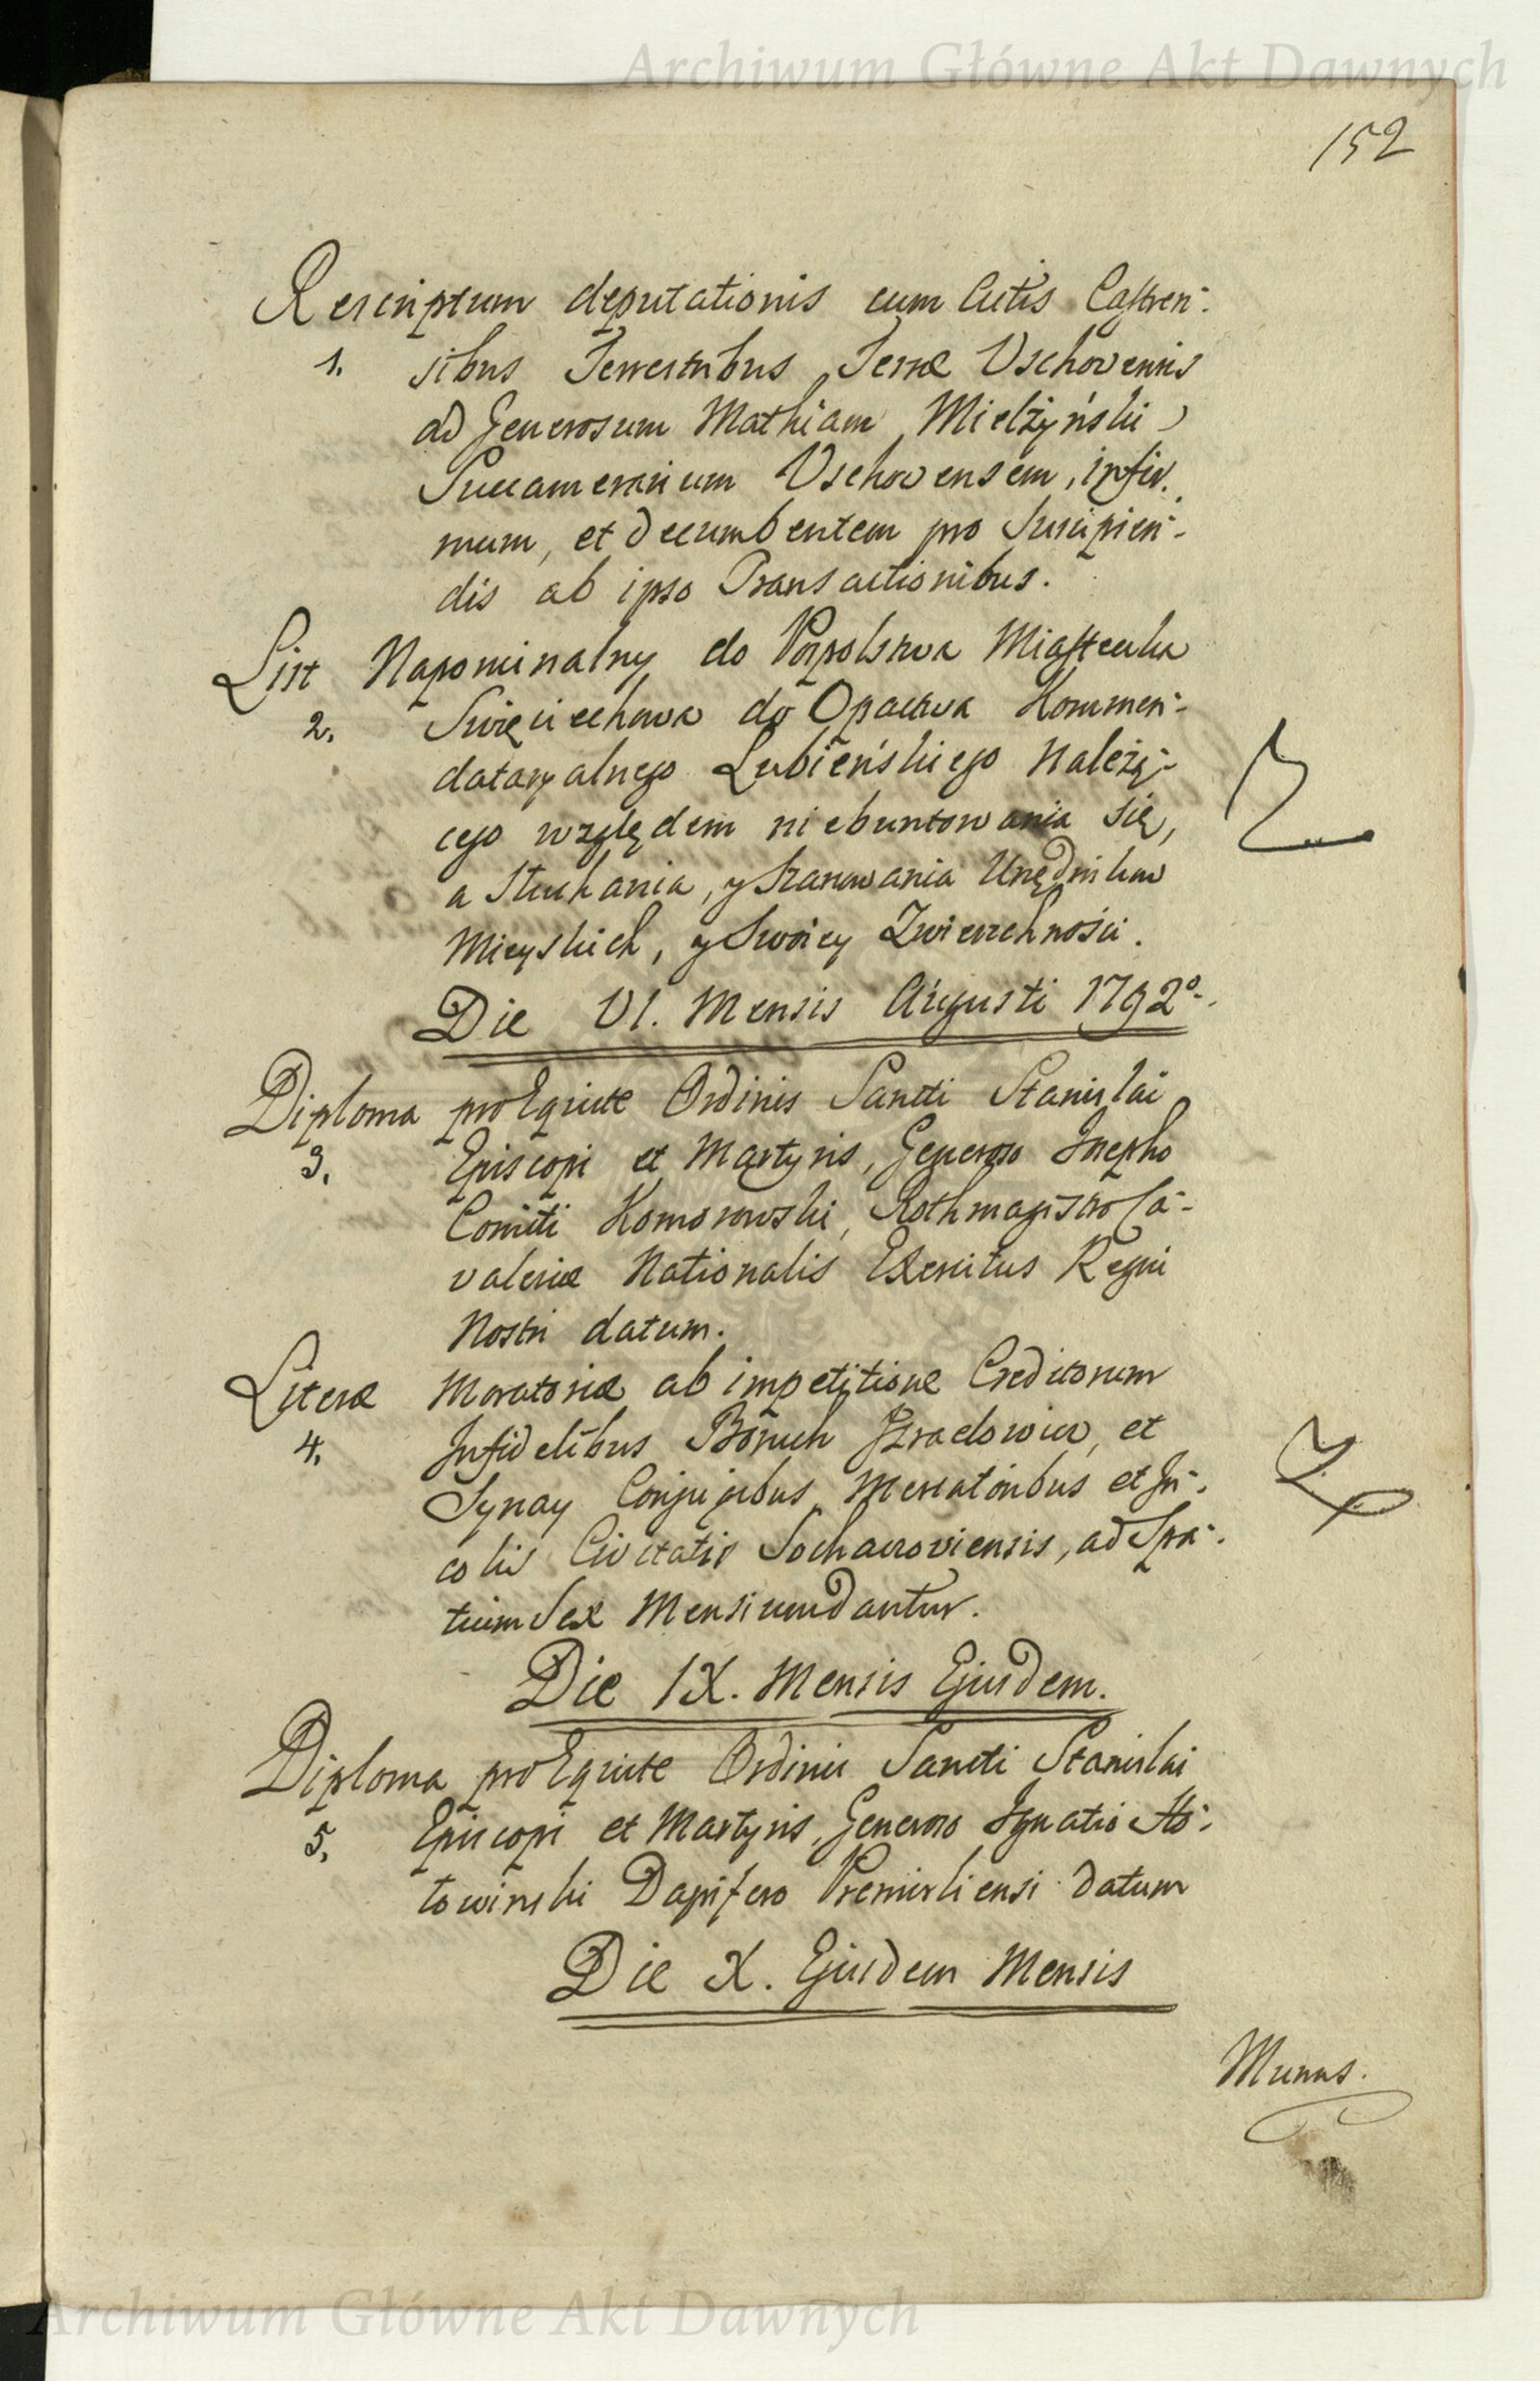 Archiwum Główne Akt Dawnych
152
Rescriptum deputationis cum Actis Castren-
1. sibus Terrestribus Terræ Vschovensis
ad Generosum Mathiam Mielżyński
Succamerarium Vschovensem, infir-
mum, et decumbentem pro Suscipien-
dis ab ipso Transactionibus.
List Napominalny do Pospolstwa Miasteczka
2. Swięciechowa do Opactwa Kommen-
dataryalnego Lubieńskiego Należą-
cego względem niebuntowania się,
a Słuchania, y Szanowania Urzędnikow
Mieyskich, y Swoiey Zwierzchności.
Die VI. Mensis Augusti 1792o.
Diploma pro Equite Ordinis Sancti Stanislai
3. Episcopi et Martyris, Generoso Josepho
Comiti Komorowski, Rothmagistro Ca-
valeriæ Nationalis Exercitus Regni
Nostri datum.
Literæ Moratoriæ ab impetitione Creditorum
4. Infidelibus Boruch Jzraelowicz, et
Synay Conjugibus Mercatoribus et In-
colis Civitatis Sochaczoviensis, ad Spa-
tium Sex Mensium dantur.
Die IX. Mensis Ejusdem.
Diploma pro Equite Ordinis Sancti Stanislai
5. Episcopi et Martyris, Generoso Ignatio
Dapifero Premisliensi datum
Die X. Ejusdem Mensis
Munus.
Archiwum Główne Akt Dawnych